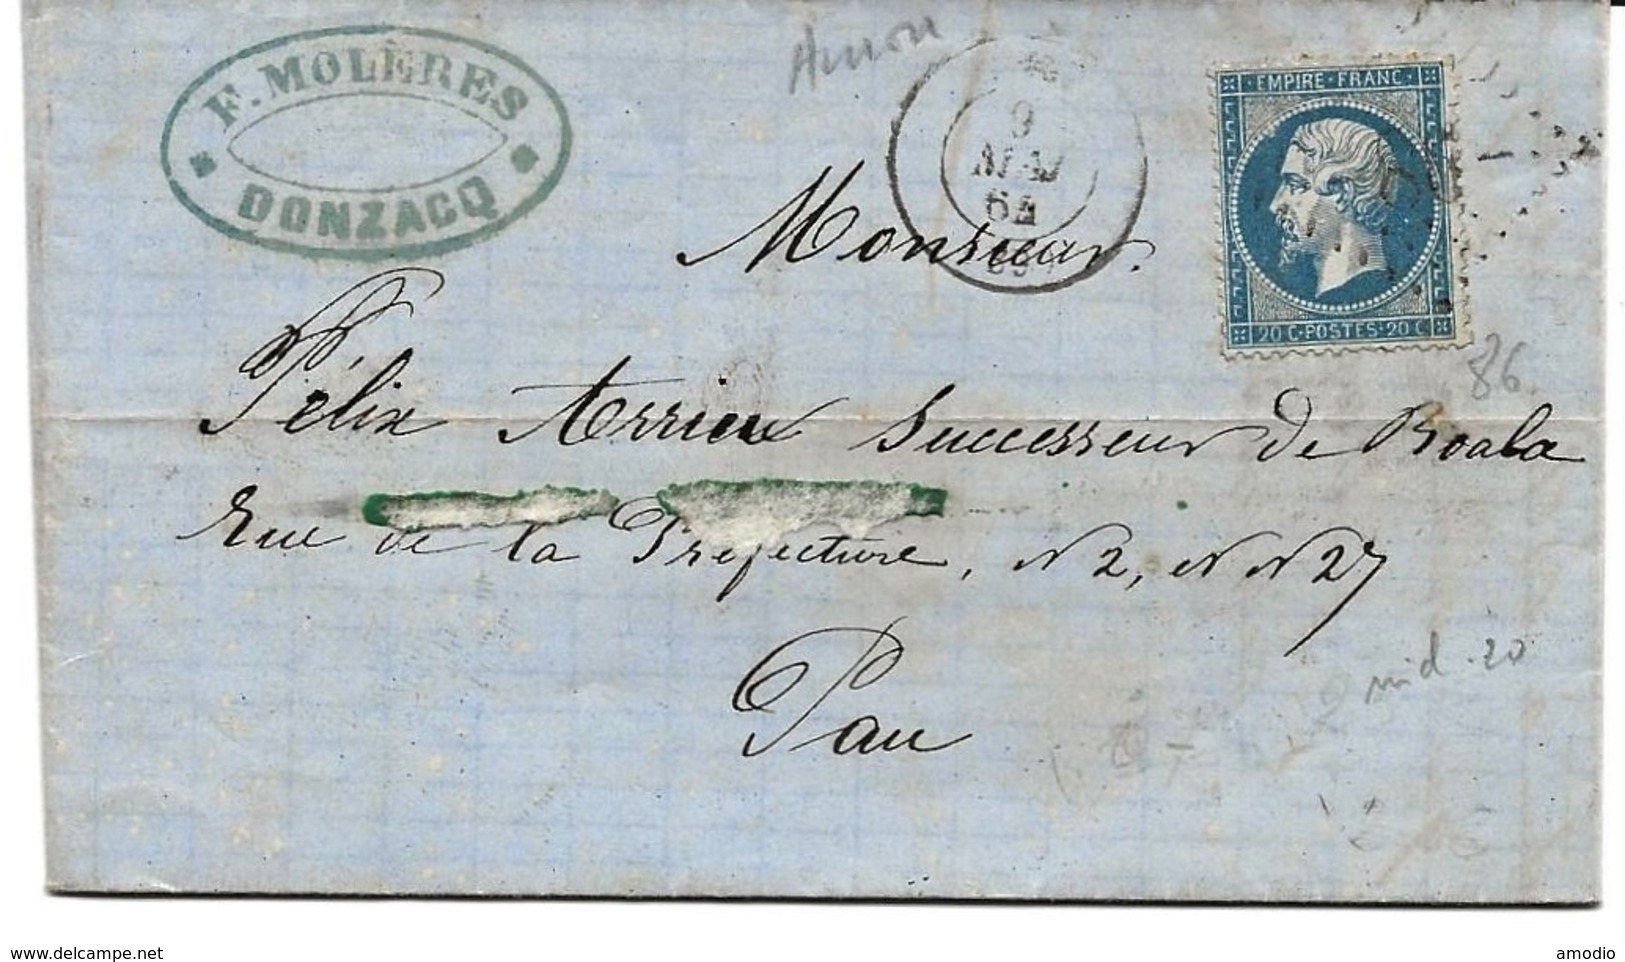 F. MOLÈRES
DONZACQ
9
MAI
64
EMPIRE · FRANC
20 C · POSTES · 20 C
Monsieur
Félix Arrieu Successeur de Boala
Rue de la Préfecture, N 2, N N 27
Pau
86
nid. 20
www.delcampe.net
amodio